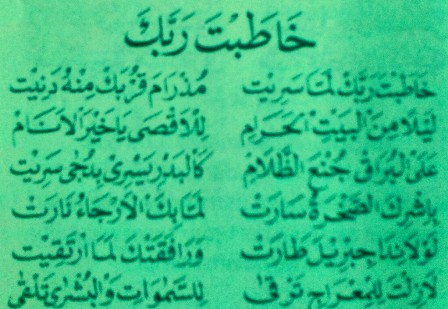 خَاطَبْتَ رَبَّكَ
خَاطَبْتَ رَبَّكَ لَمَّا سَرِيْتَ مُذْرَامَ قُرْبَكَ مِنْهُ دَنِيْتَ
لَيْلًا مِنَ الْبَيْتِ الْحَرَامِ لِلْاَقْصَى يَاخَيْرَ الْاَنَامْ
عَلَى الْبُرَاقِ جُنْحَ الظَّلَامِ كَالْبَدْرِ يَسْرِيْ بِدُجًى سَرِيْتَ
بِاِثْرِكَ الصَّخْرَةُ سَارَتْ لَمَّا بِكَ الْاَرْجَاءُ نَارَتْ
لَوْلَا نِدَا جِبْرِيْلَ طَارَتْ وَرَافَقَتْكَ لَمَا ارْتَقَيْتَ
لَازِلْتَ لِلْمِعْرَاجِ تَرْقَى لِلسَّمٰوَاتِ وَالْبُشْرَى تَلْقَى